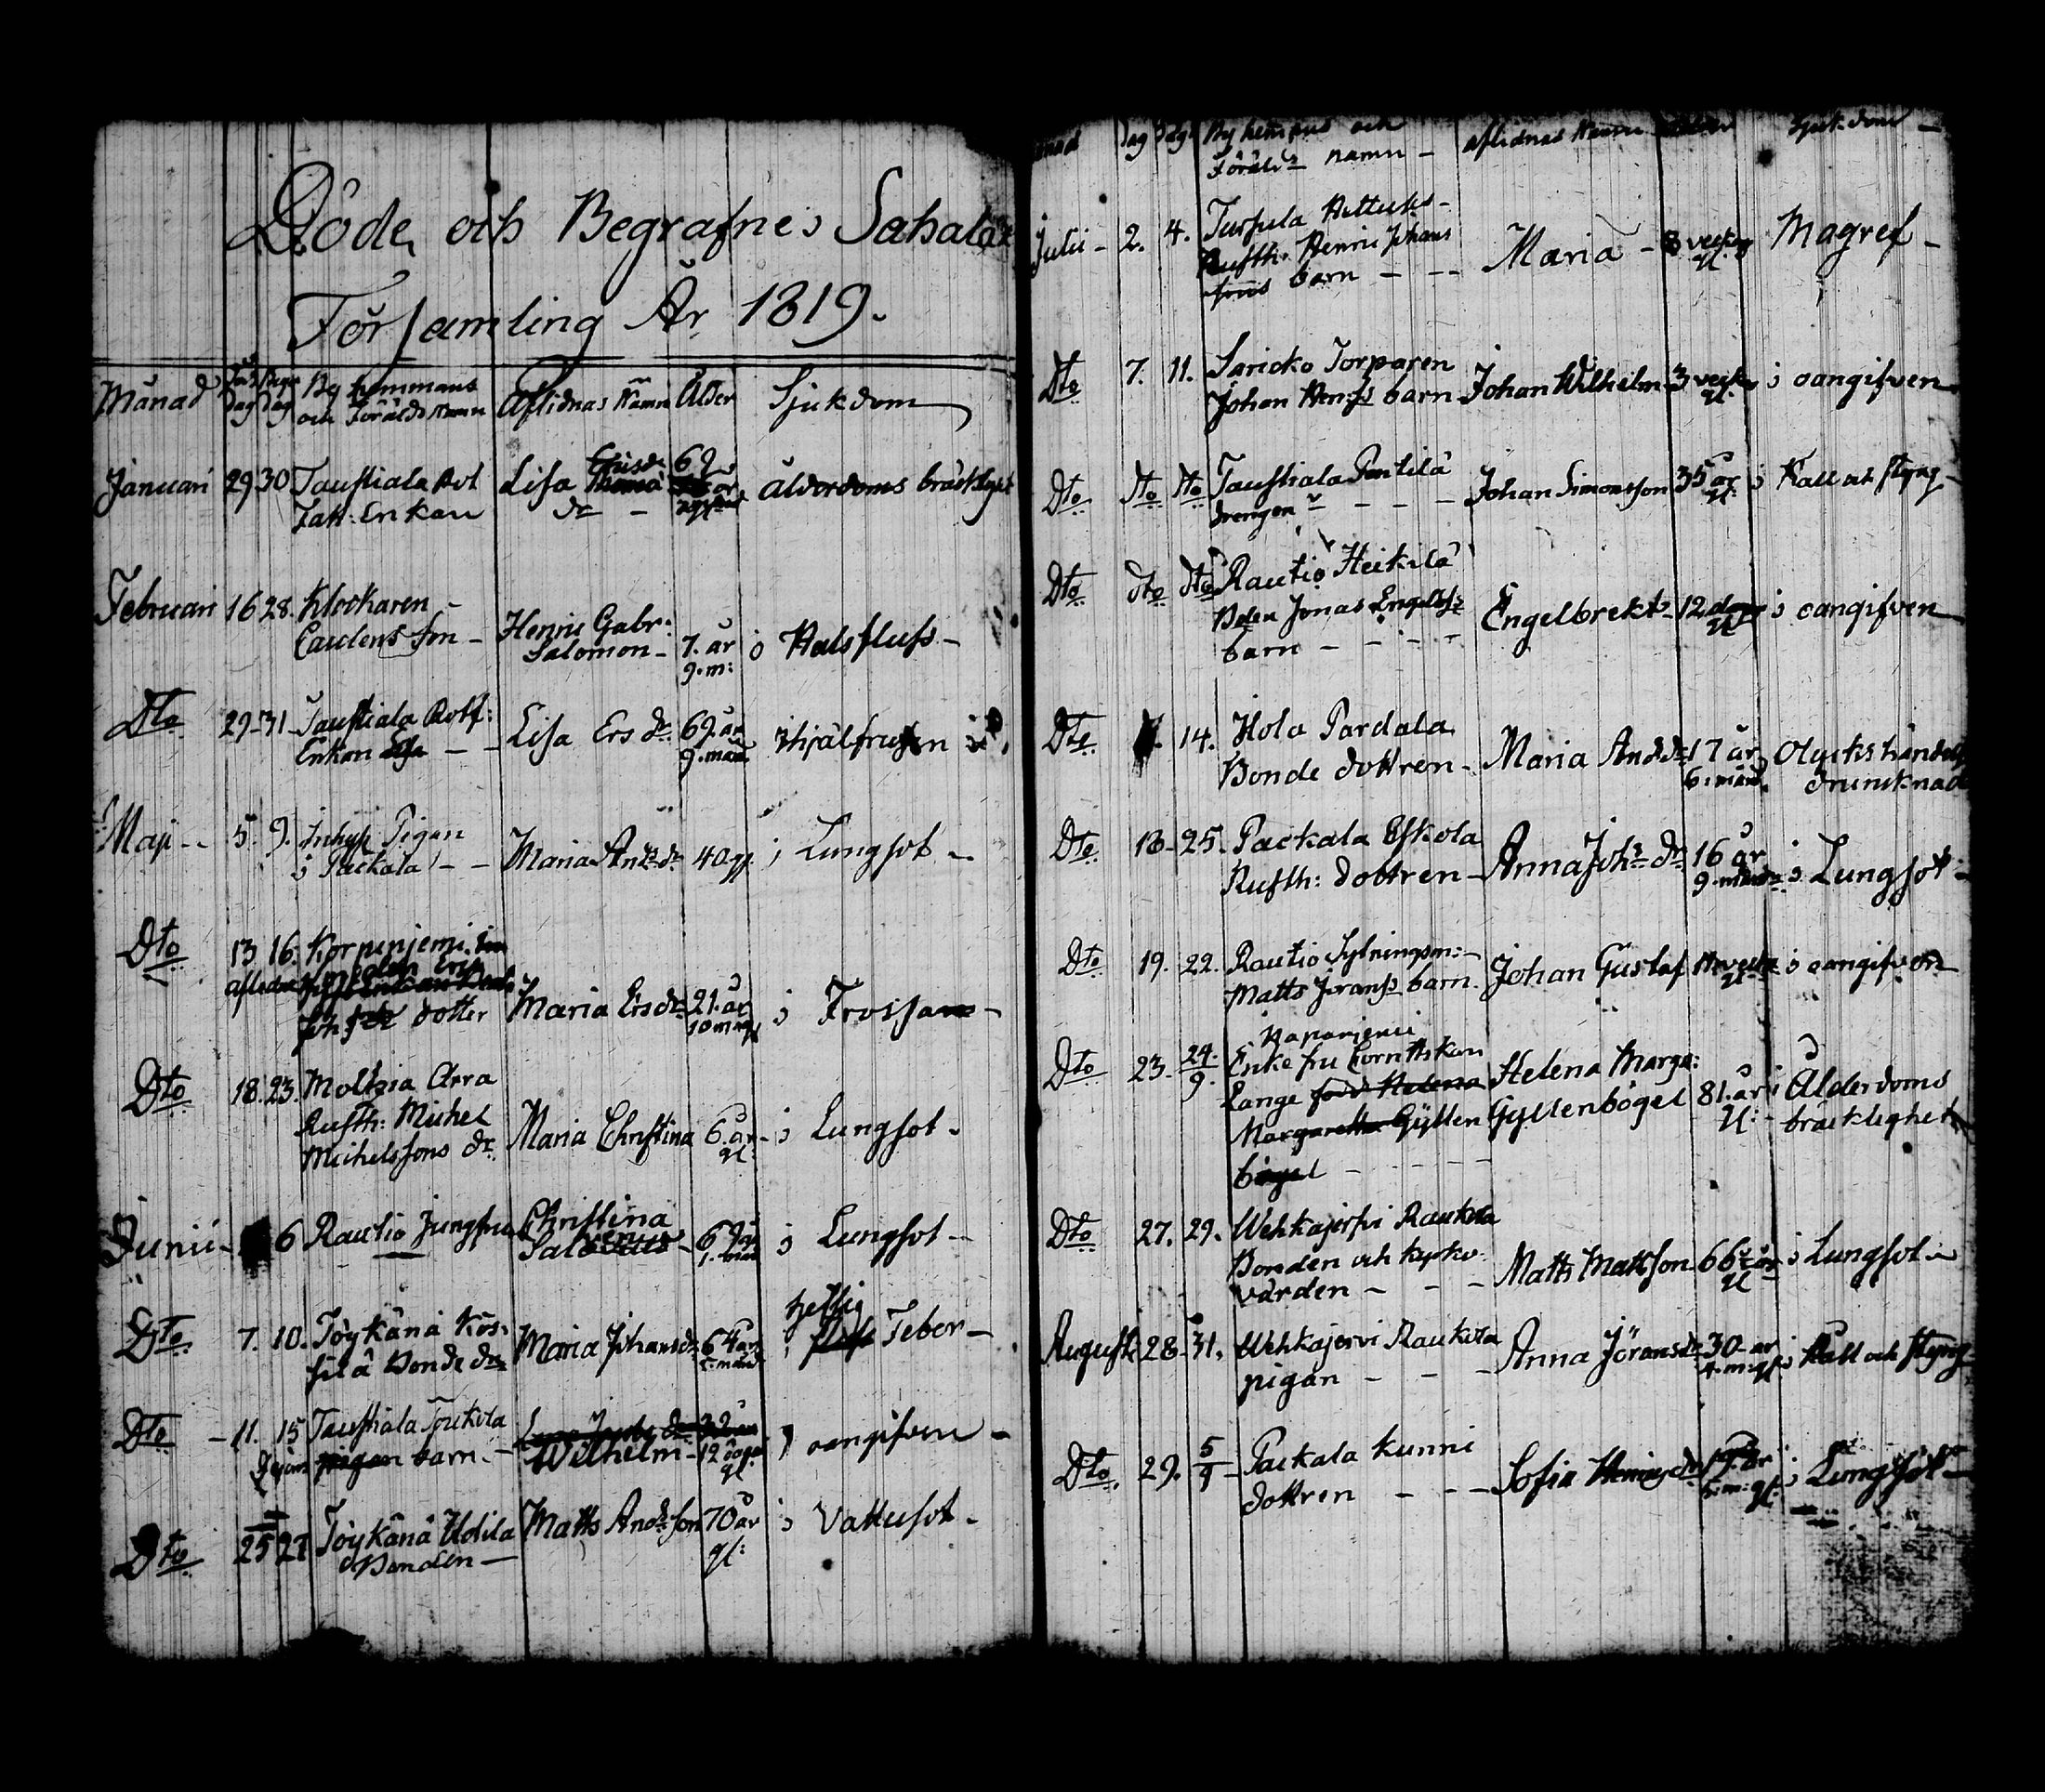 Döde och Begrafne i Sahala
Församling År 1819.
Månad Död Dag Begr Dag By hemmans och Föräld. Namn Aflidnas Namn Ålder Sjukdom
Januari 29 30 Taustiala Rol Lisa Erisdr 69 år ålderdoms bräcklight
Enkan
Februari 16 28. Klockaren
Caulens son - Henric Gabr: Salomon - 7. år 9. m: i Halsfluss -
Dto 29 31 Taustiala Rolf:
Enkan - - Lisa Ers dr 69. år 9. mån ihjälfrusen
Maji - - 5. 9. Inhys Pigan
i Packala - - Maria And: dr 40. gl. i Lungsot -
Dto 13 16. Korpinjemi
dotter Maria Ersdr 21. år 10 m gl i Frossan -
Dto 18. 23. Moltsia Arra
Rusth: Michel
Michelssons dr. Maria Christina 6. år gl: i Lungsot -
Junii - 6 Rautio Jungfru Christina
Salovius - 69 år 1. mån i Lungsot -
Dto 7. 10. Töykänä Kös-
silä Bonde dr Maria Johansdr 64 år hessig Feber -
Dto - 11. 15 Taustiala Toukola
barn. - Wilhelm - 12 dagar gl. i oangifven -
Dto 25 27 Töykänä Uotila
Bonden - Matts And: son 70 år gl: i Vattusot -
Månad Dag Dag By hemmans och
Föräld:s namn - aflidnas Namn Ålder Sjukdom -
Julii - 2. 4. Turpela Anttuks -
Rusth. Henric Johans
barn - - - Maria - 8 veckor gl. Magref -
Dto 7. 11. Saricko Torparen
Johan Henr:s barn - Johan Wilhelm 3 veckor gl. i oangifven
Dto dto dto Taustiala Pentilä
drengen - - - Johan Simonsson 35 år gl: i Håll och styng -
Dto dto dto Rautio Heikilä
Bden Jonas Engelbr:s
barn - - - Engelbrekt - 12 dagar gl i oangifven
Dto 14. Hola Pardala
Bonde dottren - Maria And:dr 17 år 6. mån. Olyckshändelse
drunknade
Dto 18 - 25. Packala Eskola
Rusth: dottren - Anna Joh: dr 16 år 9. månad i Lungsot -
Dto 19. 22. Rautio Sytningsm: -
Matts Jörans:s barn. Johan Gustaf veckor gl i oangifven
Dto 23. 24/9. Haparjemi
Enke fru Cornettskan
Lange född Helena Helena Marga:
Margaretha Gyllen Gyllenbögel 81. år gl: - i Ålderdoms
bögel - - - - bräcklighet
Dto 27. 29. Wehkajerfvi Raukola
Bonden och kyrko
värden - - - Matts Mattson 66 år gl i Lungsot -
Augusti 28 - 31. Wehkajervi Raukola
pigan - - - Anna Jöransdr 30 år 4. m: gl. i Håll och styng
Dto. 29. 5/9 - Packala Kunni
dottren - - - Sofia Henricsdr 19 år i Lungsot -